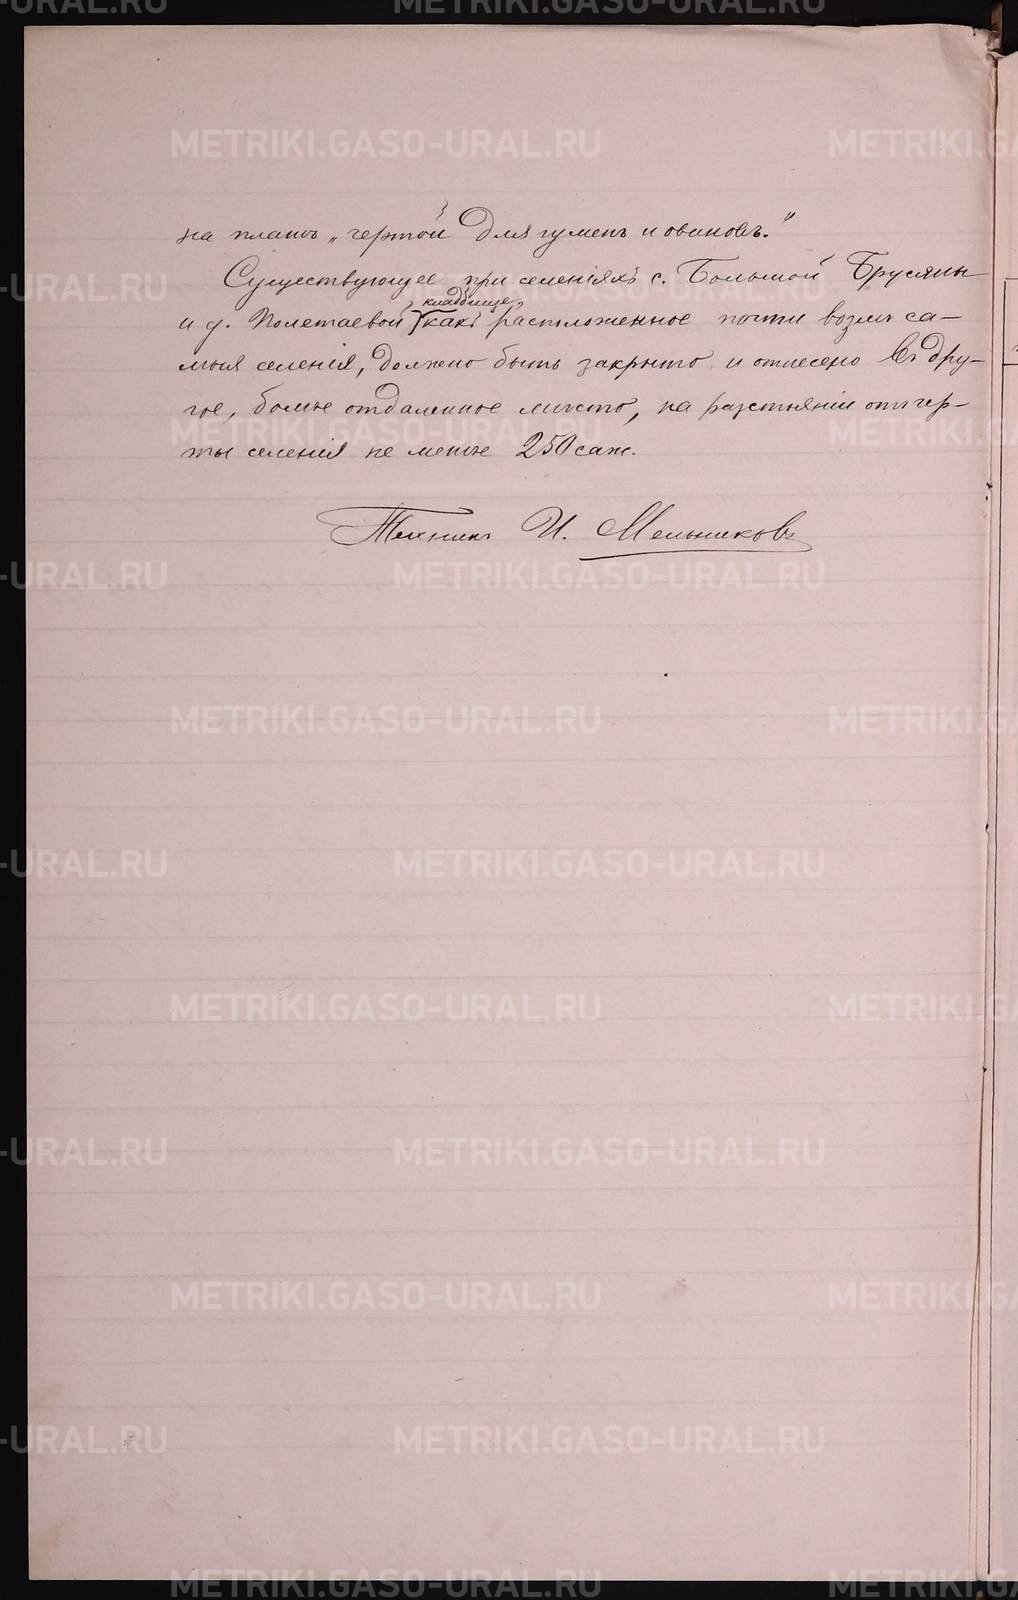 на планѣ „чертой для гуменъ и овиновъ.“
Существующее при селенiяхъ с. Большой Брусяны
и д. Полетаевой кладбище, какъ расположенное почти возлѣ са-
мыя селенiя, должно быть закрыто и отнесено въ дру-
гое, болѣе отдаленное мѣсто, на разстоянiи отъ чер-
ты селенiя не менѣе 250 саж.
Техникъ И. Мельниковъ
METRIKI.GASO-URAL.RU